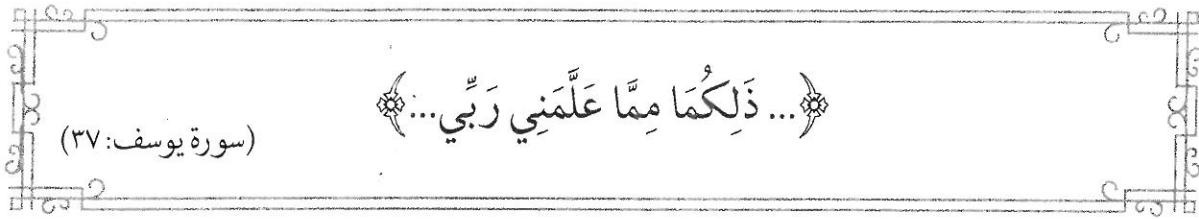 ﴿... ذَلِكُمَا مِمَّا عَلَّمَنِي رَبِّي...﴾
(سورة يوسف: ٣٧)